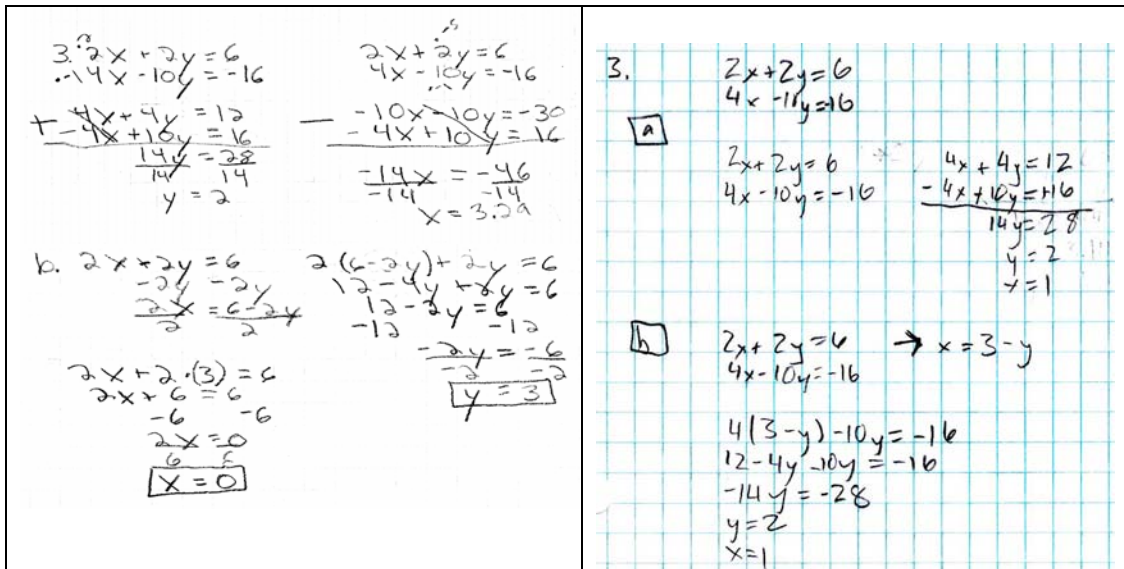 3. 2x + 2y = 6
·-1 4x - 10y = -16
+ 4x + 4y = 12
-4x + 10y = 16
14y = 28
14 14
y = 2
2x + 2y = 6
4x - 10y = -16
- -10x - 10y = -30
- 4x + 10y = 16
-14x = -46
-14 -14
x = 3.29
b. 2x + 2y = 6
-2y -2y
2x = 6 - 2y
2 2
2(6-2y) + 2y = 6
12 - 4y + 2y = 6
12 - 2y = 6
-12 -12
-2y = -6
-2 -2
y = 3
2x + 2·(3) = 6
2x + 6 = 6
-6 -6
2x = 0
x = 0
3.
2x + 2y = 6
4x - 10y = 16
a
2x + 2y = 6
4x - 10y = -16
4x + 4y = 12
- 4x + 10y = +16
14y = 28
y = 2
x = 1
b
2x + 2y = 6 → x = 3 - y
4x - 10y = -16
4(3 - y) - 10y = -16
12 - 4y - 10y = -16
-14y = -28
y = 2
x = 1